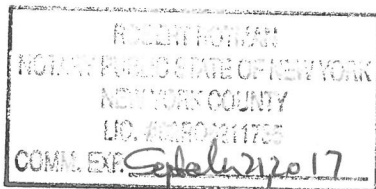 ROBERT ROTMAN
NOTARY PUBLIC STATE OF NEW YORK
NEW YORK COUNTY
LIC.
COMM. EXP. 2017